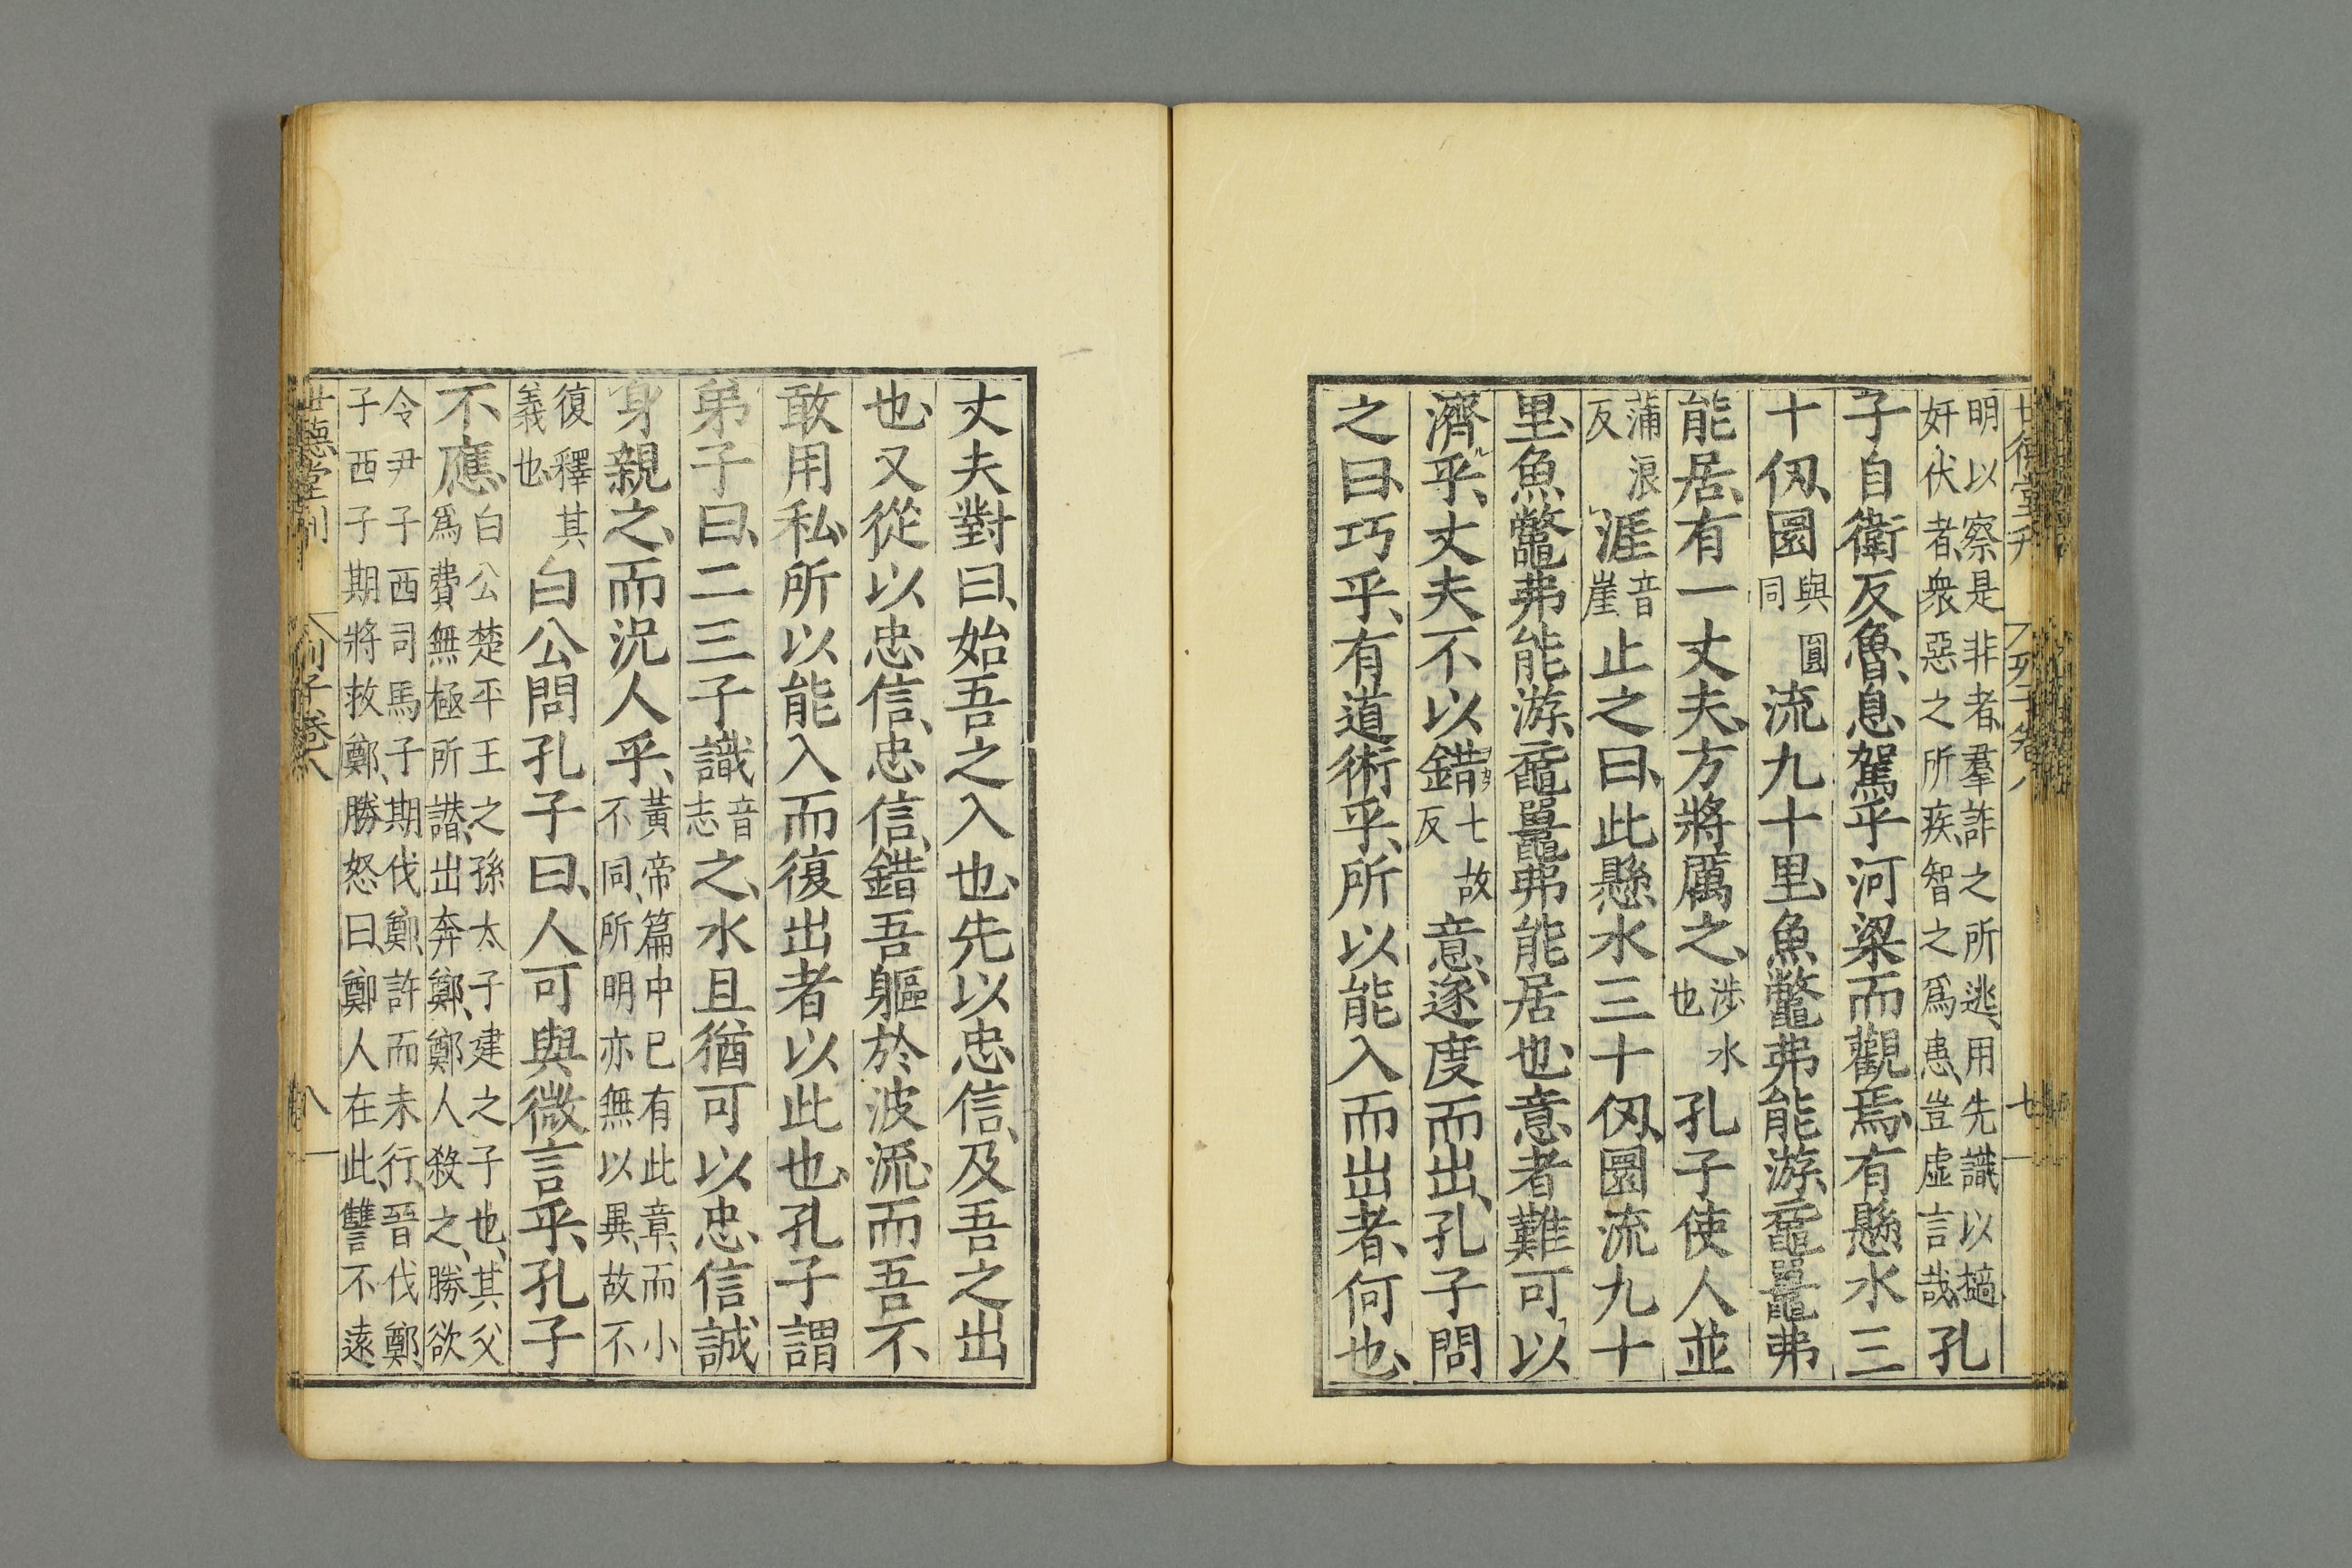 明以察是非者、羣詐之所逃、用先識以擿
奸伏者、衆惡之所疾、智之爲患、豈虛言哉、孔
子自衛反魯、息駕乎河梁而觀焉、有懸水三
十仭、圜與圓同流九十里、魚鼈弗能游、黿鼉弗
能居、有一丈夫、方將厲之、涉水也孔子使人並
蒲浪反涯音崖止之曰、此懸水三十仭、圜流九十
里、魚鼈弗能游、黿鼉弗能居也、意者難可以
濟乎、丈夫不以錯七故反意、遂度而出、孔子問
之曰、巧乎、有道術乎、所以能入而出者、何也、
丈夫對曰、始吾之入也、先以忠信、及吾之出
也、又從以忠信、忠信、錯吾軀於波流、而吾不
敢用私、所以能入而復出者以此也、孔子謂
弟子曰、二三子識音志之、水且猶可以忠信誠
身親之、而況人乎、黃帝篇中已有此章、而小不同、所明亦無以異、故不
復釋其義也白公問孔子曰、人可與微言乎、孔子
不應、白公楚平王之孫太子建之子也、其父爲費無極所譖、出奔鄭、鄭人殺之、勝欲
令尹子西司馬子期伐鄭、許而未行、晉伐鄭
子西子期將救鄭、勝怒曰、鄭人在此讐不遠
世德堂刊
列子卷八
八